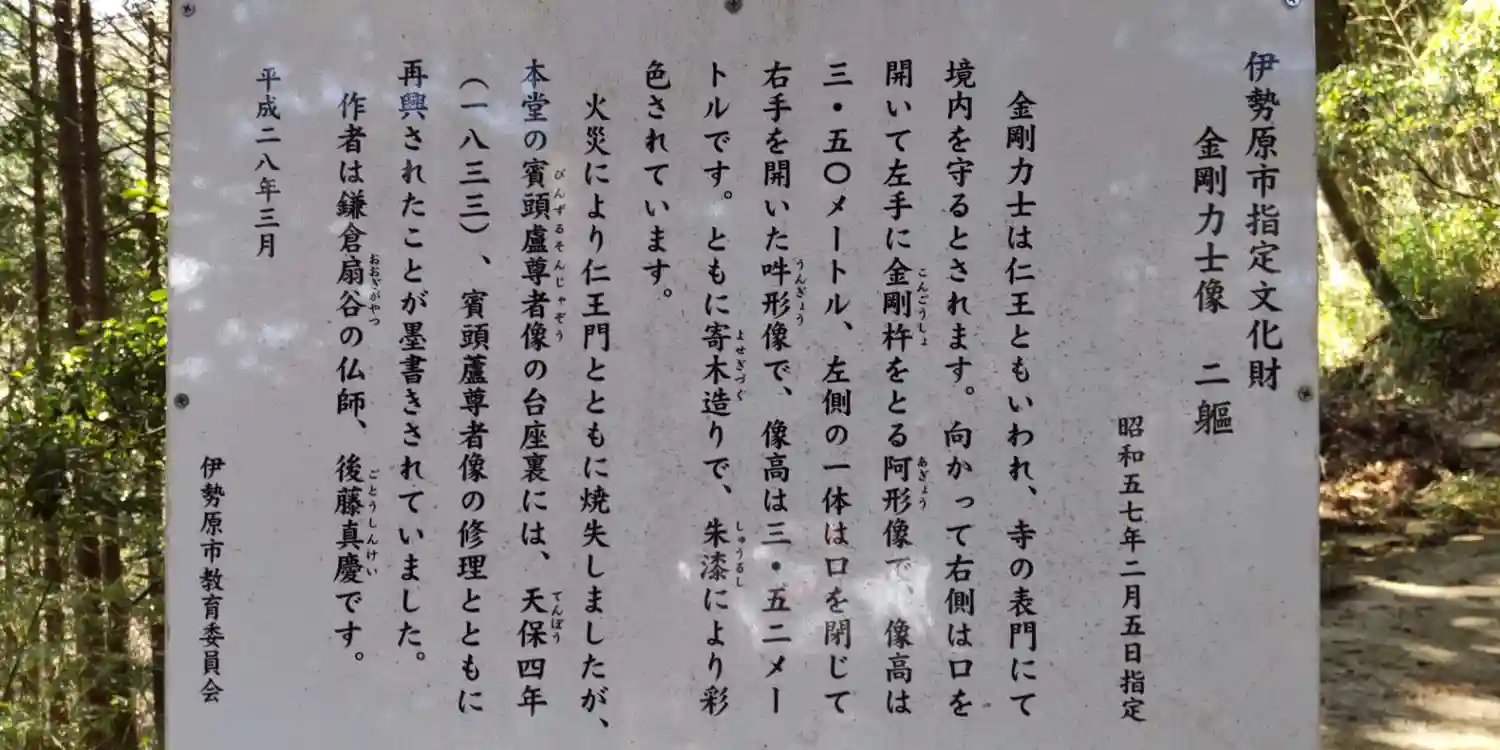 伊勢原市指定文化財
金剛力士像　二軀
昭和五七年二月五日指定
金剛力士は仁王ともいわれ、寺の表門にて
境内を守るとされます。向かって右側は口を
開いて左手に金剛杵をとる阿形像で、像高は
三・五〇メートル、左側の一体は口を閉じて
右手を開いた吽形像で、像高は三・五二メー
トルです。ともに寄木造りで、朱漆により彩
色されています。
火災により仁王門とともに焼失しましたが、
本堂の賓頭盧尊者像の台座裏には、天保四年
（一八三三）、賓頭蘆尊者像の修理とともに
再興されたことが墨書きされていました。
作者は鎌倉扇谷の仏師、後藤真慶です。
平成二八年三月
伊勢原市教育委員会
こんごうしょ
あぎょう
うんぎょう
よせぎづく
しゅうるし
びんずるそんじゃぞう
てんぽう
おおぎがやつ
ごとうしんけい